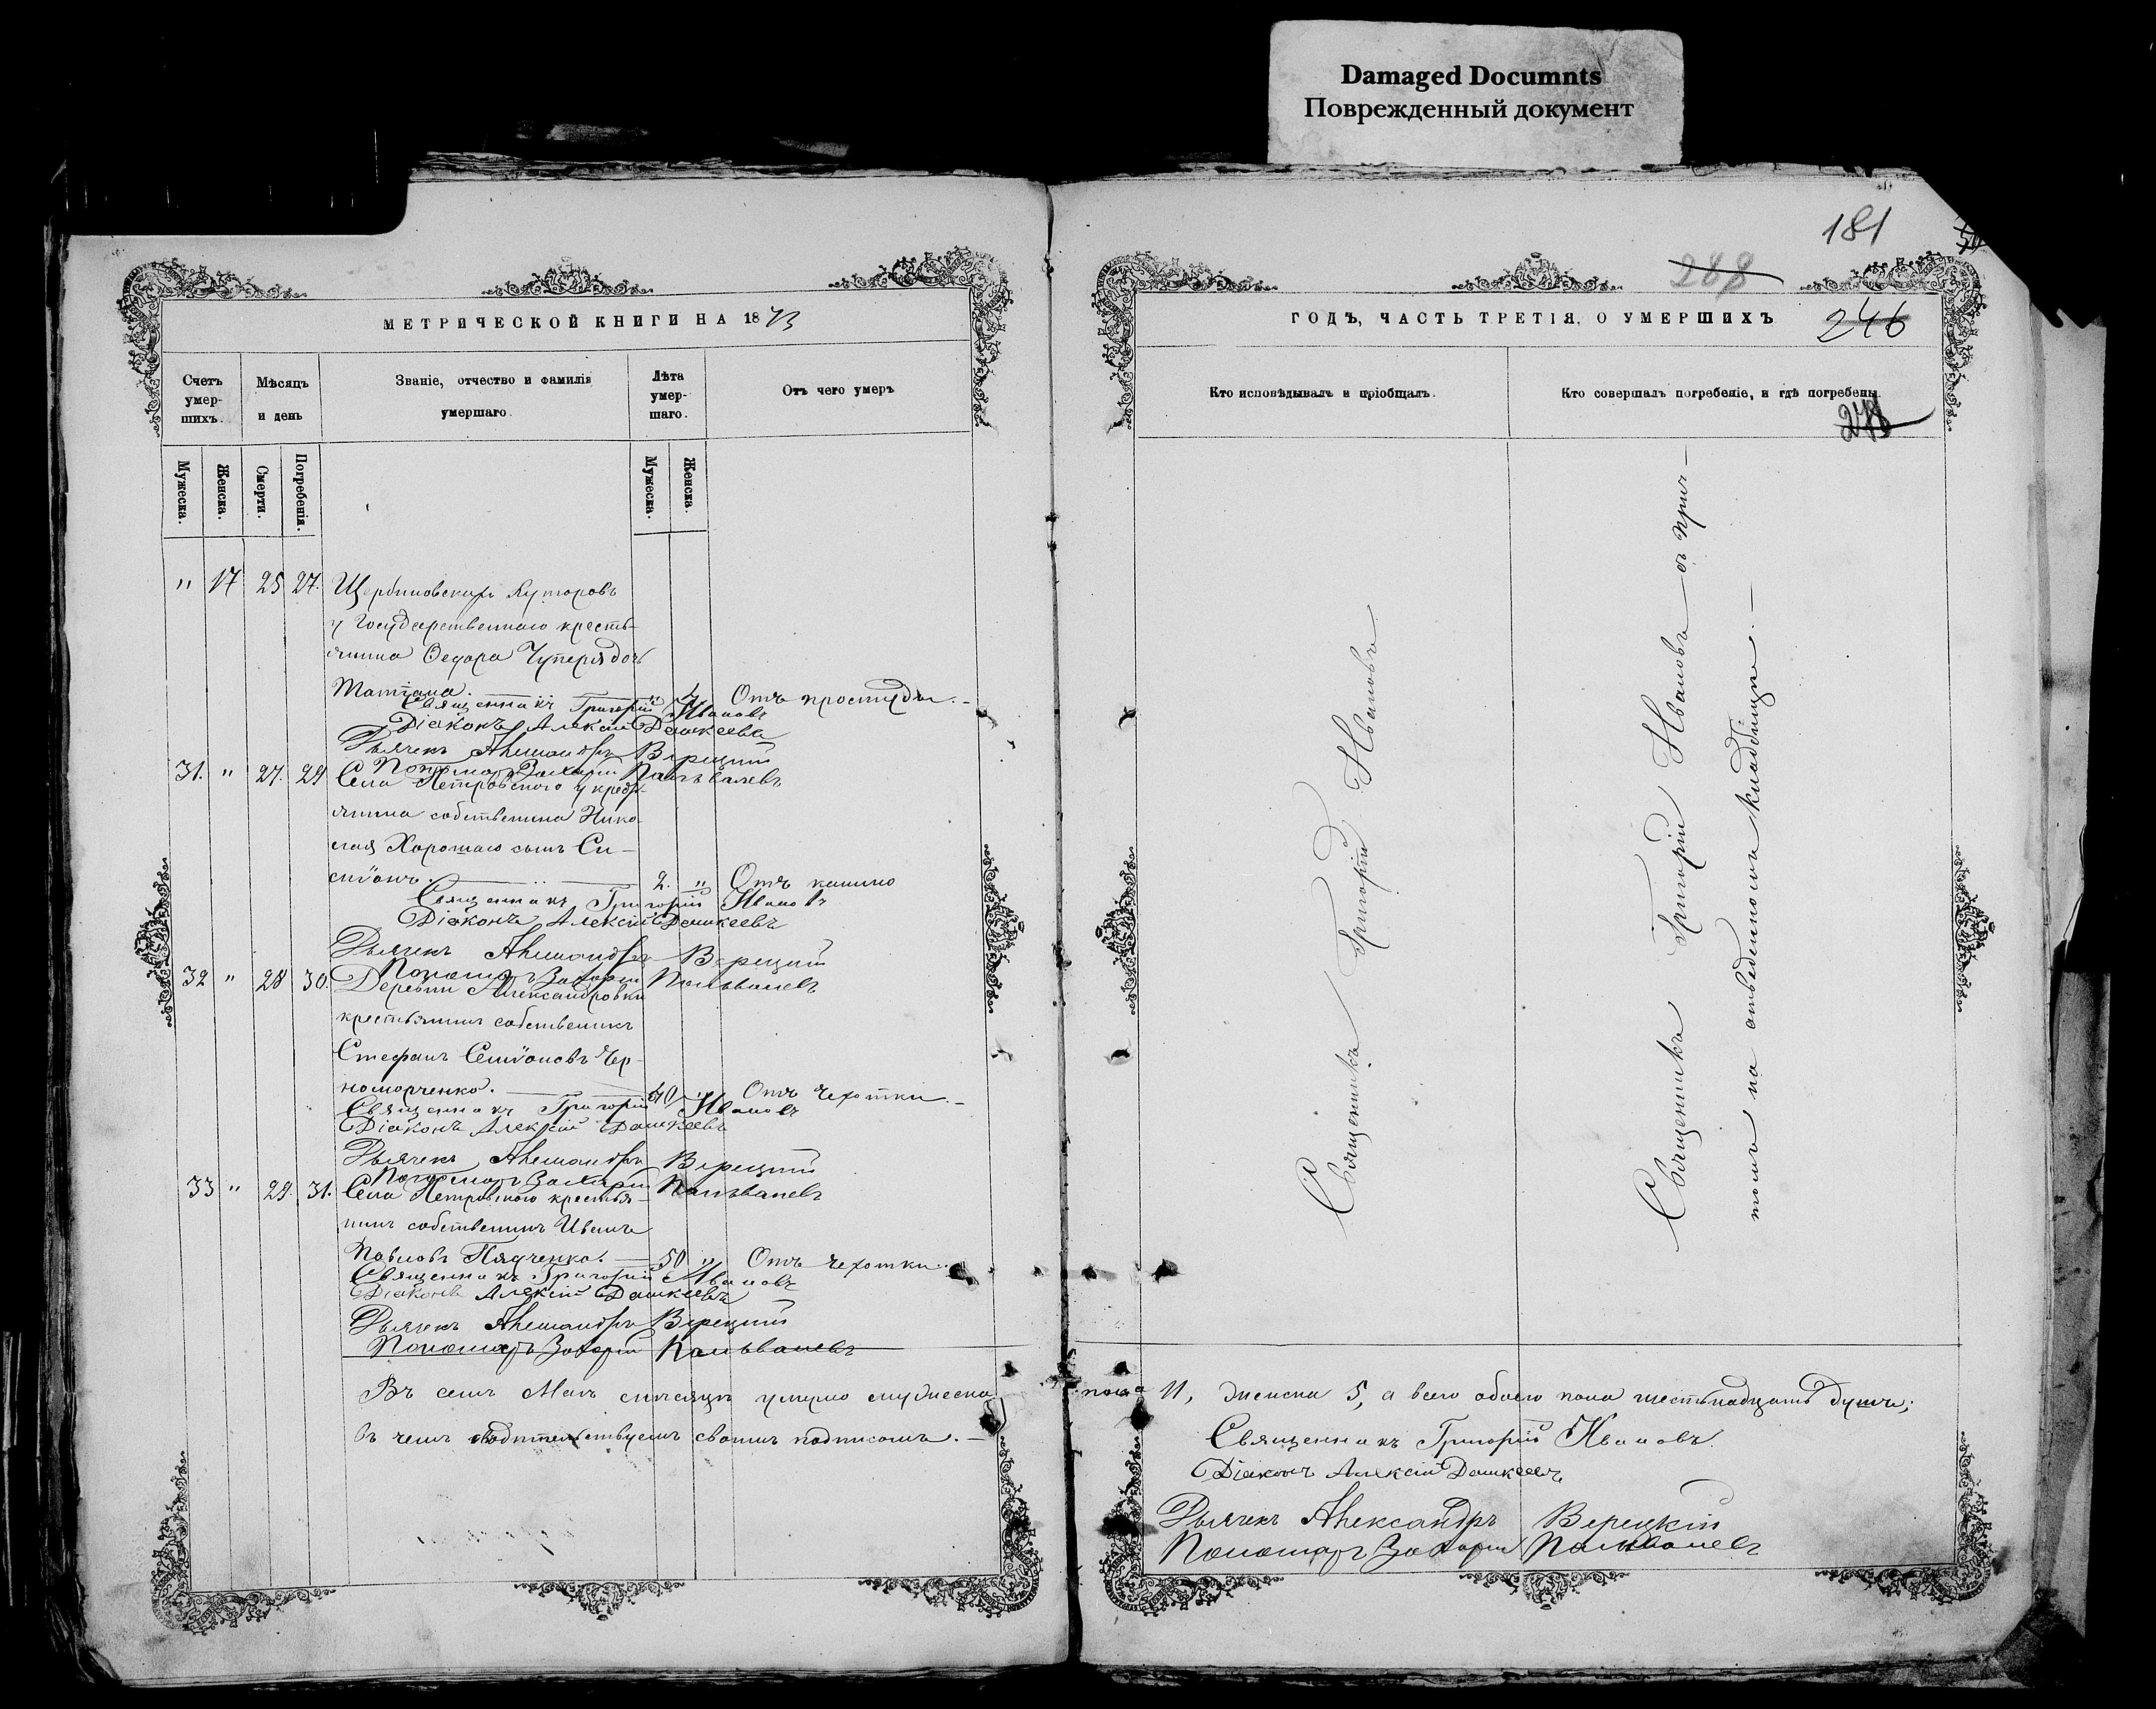 Damaged Documnts
Поврежденный документ
181
288
МЕТРИЧЕСКОЙ КНИГИ НА 1873
ГОДЪ, ЧАСТЬ ТРЕТІЯ, О УМЕРШИХЪ
246
Счетъ умер-шихъ.
Мѣсяцъ и день
Званіе, отчество и фамилія умершаго.
Лѣта умер-шаго.
Отъ чего умеръ
Кто исповѣдывалъ и пріобщалъ.
Кто совершалъ погребеніе, и гдѣ погребены.
278
Мужеска.
Женска.
Смерти.
Погребенія.
Мужеска.
Женска.
" 17 25 27. Щербиновскихъ Хуторовъ
у Государственнаго кресть-
янина Ѳедора дочь
Татіана. " 4 Отъ простуды.
Священникъ Григорій Ивановъ
Діаконъ Алексій Дашкеевъ
Дьячекъ Александръ Верецкій
Пономарь Захарій
31. " 27. 29 Села Петровского у кресть-
янина собственика Нико-
лая Хорошаго сынъ Си-
міонъ. 2. " Отъ кашлю
Священникъ Григорій Ивановъ
Діаконъ Алексій Дашкеевъ
Дьячекъ Александръ Верецкій
Пономарь Захарій
32 " 28 30. Деревни Александровки
крестьянинъ собственикъ
Стефанъ Симіоновъ Чер-
номорченко. 40 " Отъ чехотки.
Священникъ Григорій Ивановъ
Діаконъ Алексій Дашкеевъ
Дьячекъ Александръ Верецкій
Пономарь Захарій
33 " 29. 31. Села Петровского крестья-
нинъ собственикъ Иванъ
Павловъ 50 " Отъ чехотки.
Священникъ Григорій Ивановъ
Діаконъ Алексій Дашкеевъ
Дьячекъ Александръ Верецкій
Пономарь Захарій
Въ семъ Маѣ мѣсяцѣ умерло мужеска
пола 11, женска 5, а всего обоего пола шестьнадцать душъ;
въ чемъ свидѣтельствуемъ своимъ подписомъ.
Священникъ Григорій Ивановъ.
Діаконъ Алексій Дашкеевъ
Дьячекъ Александръ Верецкій
Пономарь Захарій
Священникъ Григорій Ивановъ
Священникъ Григорій Ивановъ съ прич-
томъ на отведенномъ кладбищѣ.